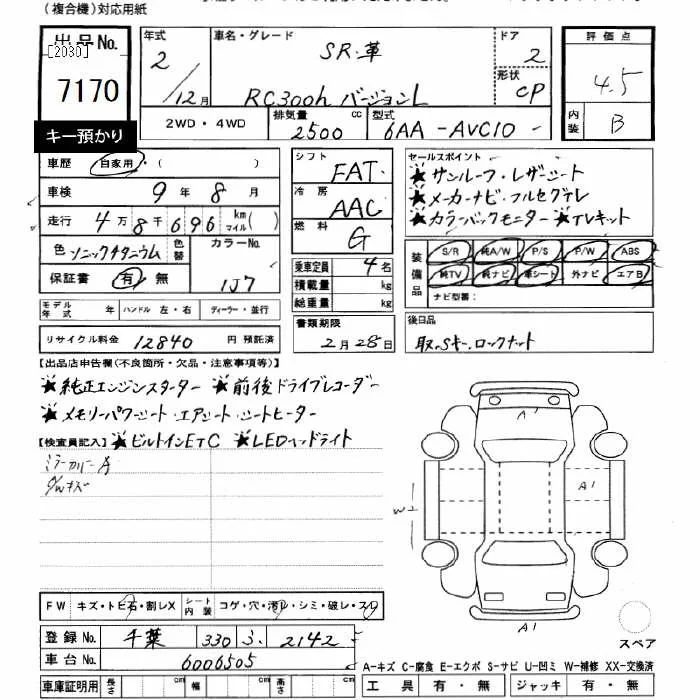 (複合機)対応用紙
出品No.
[2030]
7170
キー預かり
年式 2/12月
車名・グレード SR・革
RC300h バージョンL
ドア 2
形状 CP
評価点 4.5
内装 B
2WD・4WD 排気量 2500 cc 型式 6AA-AVC10
車歴 自家用・( )
車検 9年8月
走行 4万8千696 km マイル( )
色 ソニックチタニウム 色替 カラーNo. 1J7
保証書 有・無
シフト FAT
冷房 AAC
燃料 G
乗車定員 4名
積載量 kg
総重量 kg
セールスポイント
★サンルーフ・レザーシート
★メーカーナビ・フルセグTV
★カラーバックモニター ★TVキット
装備品 S/R 純A/W P/S P/W ABS
純TV 純ナビ 革シート 外ナビ エアB
ナビ型番:
モデル年式 年 ハンドル 左・右 ディーラー・並行
リサイクル料金 12840 円 預託済
書類期限 2月28日
後日品
取、Sキー、ロックナット
【出品店申告欄(不良箇所・欠品・注意事項等)】
★純正エンジンスターター ★前後ドライブレコーダー
★メモリーパワーシート・エアシート・シートヒーター
【検査員記入】★ビルトインETC ★LEDヘッドライト
ミラーカバーA
A1
A1
A1
FW キズ・トビ石・割レX シート内装 コゲ・穴・汚レ・シミ・破レ・スレ
登録No. 千葉 330 す 2142
車台No. 6006505
車庫証明用 長さ cm 幅 cm 高さ cm
スペア
A-キズ C-腐食 E-エクボ S-サビ U-凹ミ W-補修 XX-交換済
工具 有・無 ジャッキ 有・無